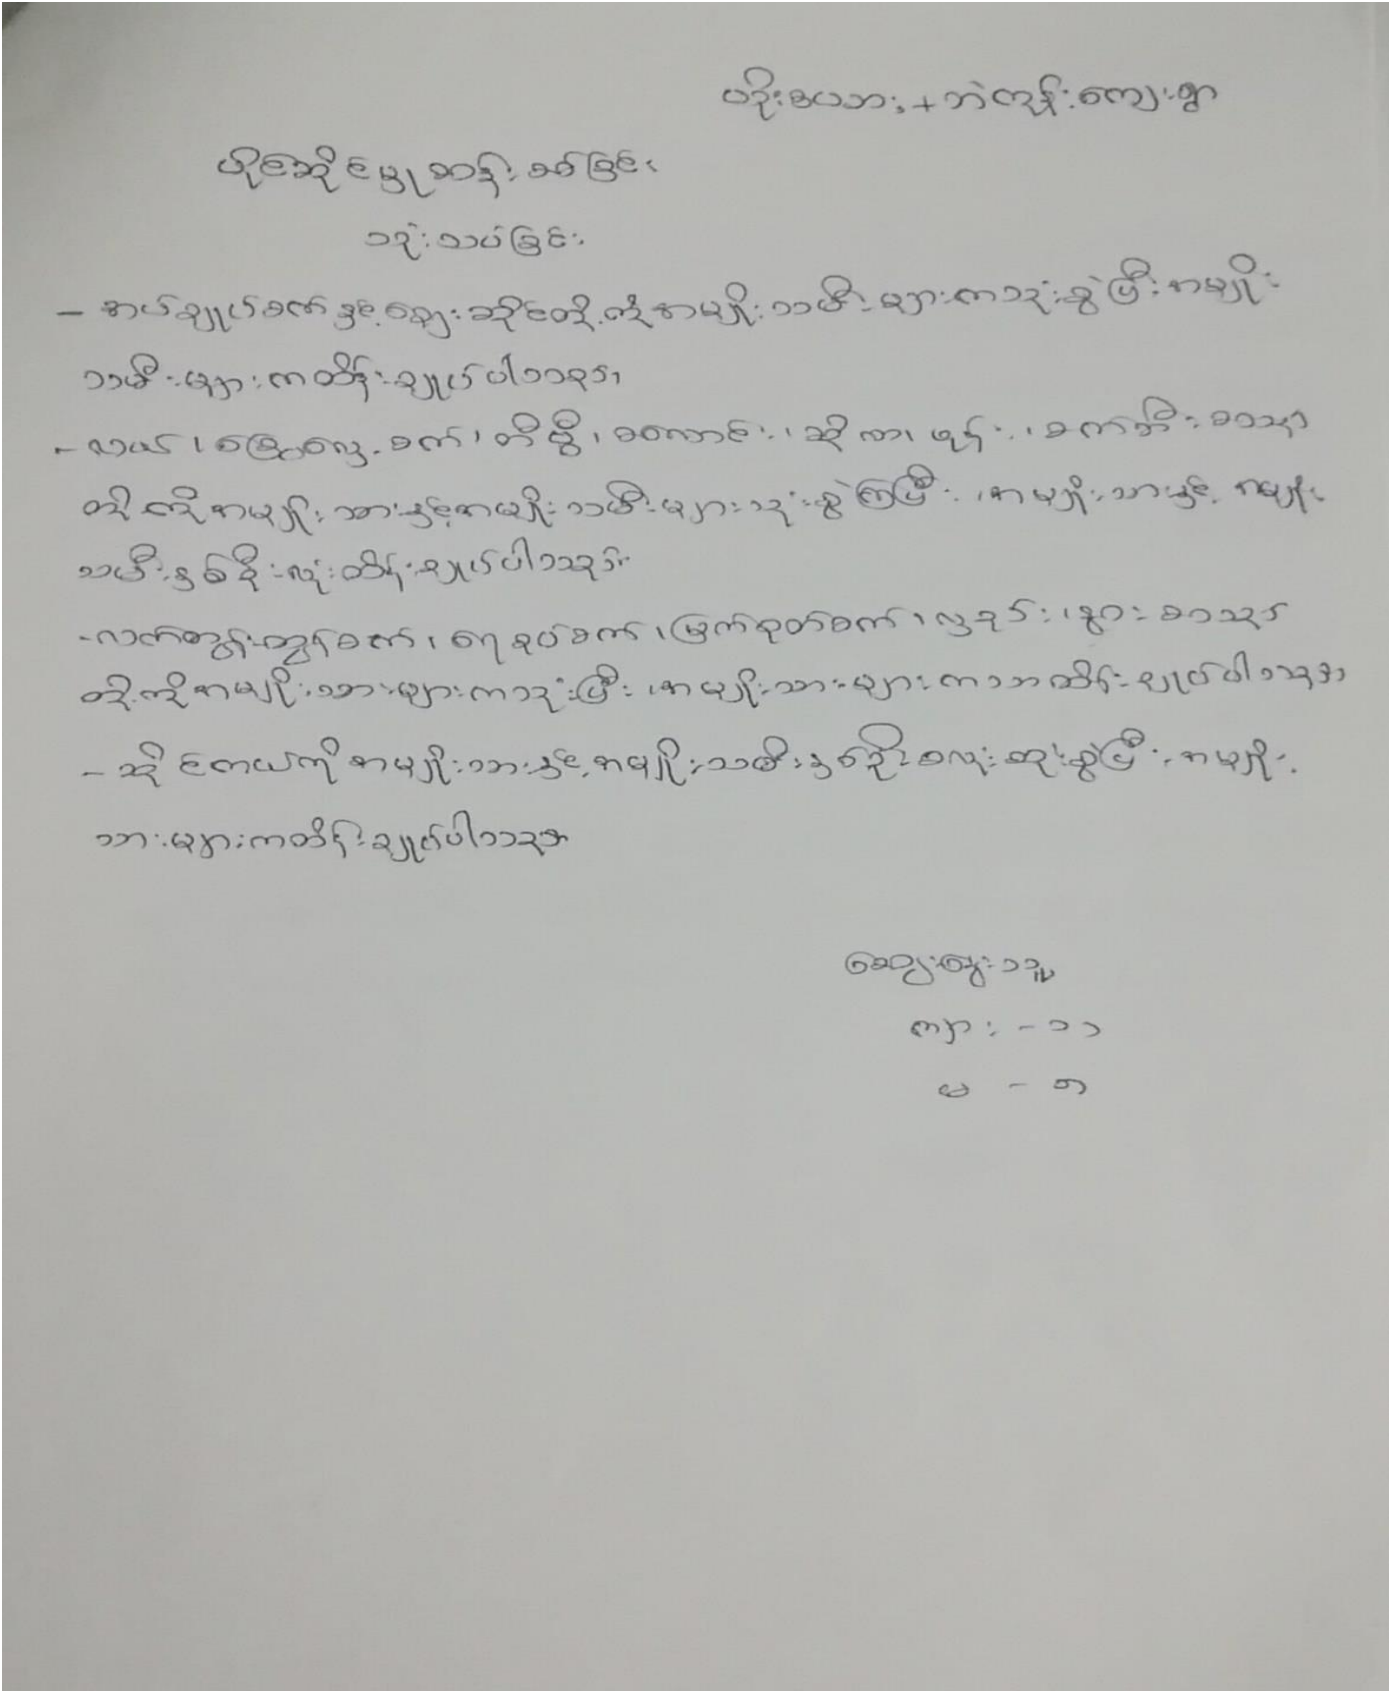 ပဒိုးစပဘး + ဘဲကုန်းကျေးရွာ
ပိုင်ဆိုင်မှုဆန်းစစ်ခြင်း
သုံးသပ်ခြင်း
- အပ်ချုပ်စက်နှင့်ဈေးဆိုင်တို့ကိုအမျိုးသမီးများကသုံးစွဲပြီးအမျိုး
သမီးများကထိန်းချုပ်ပါသည်။
- လယ်၊ ခြွေလှေ့စက်၊ တီဗွီ၊ စလောင်း၊ ဆိုလာ၊ ဖုန်း၊ စက်ဘီးစသည်
တို့ကိုအမျိုးသားနှင့်အမျိုးသမီးများသုံးစွဲကြပြီး၊ အမျိုးသားနှင့် အမျိုး
သမီးနှစ်ဦးလုံးထိန်းချုပ်ပါသည်။
- လက်တွန်းထွန်စက်၊ ရေစုပ်စက်၊ မြက်ခုတ်စက်၊ လှည်း၊ နွားစသည်
တို့ကိုအမျိုးသားများကသုံးပြီး၊ အမျိုးသားများကသာထိန်းချုပ်ပါသည်။
- ဆိုင်ကယ်ကိုအမျိုးသားနှင့်အမျိုးသမီးနှစ်ဦးစလုံးသုံးစွဲပြီး၊ အမျိုး
သားများကထိန်းချုပ်ပါသည်။
ဆွေးနွေးသူ
ကျား - ၁၁
မ - ၈